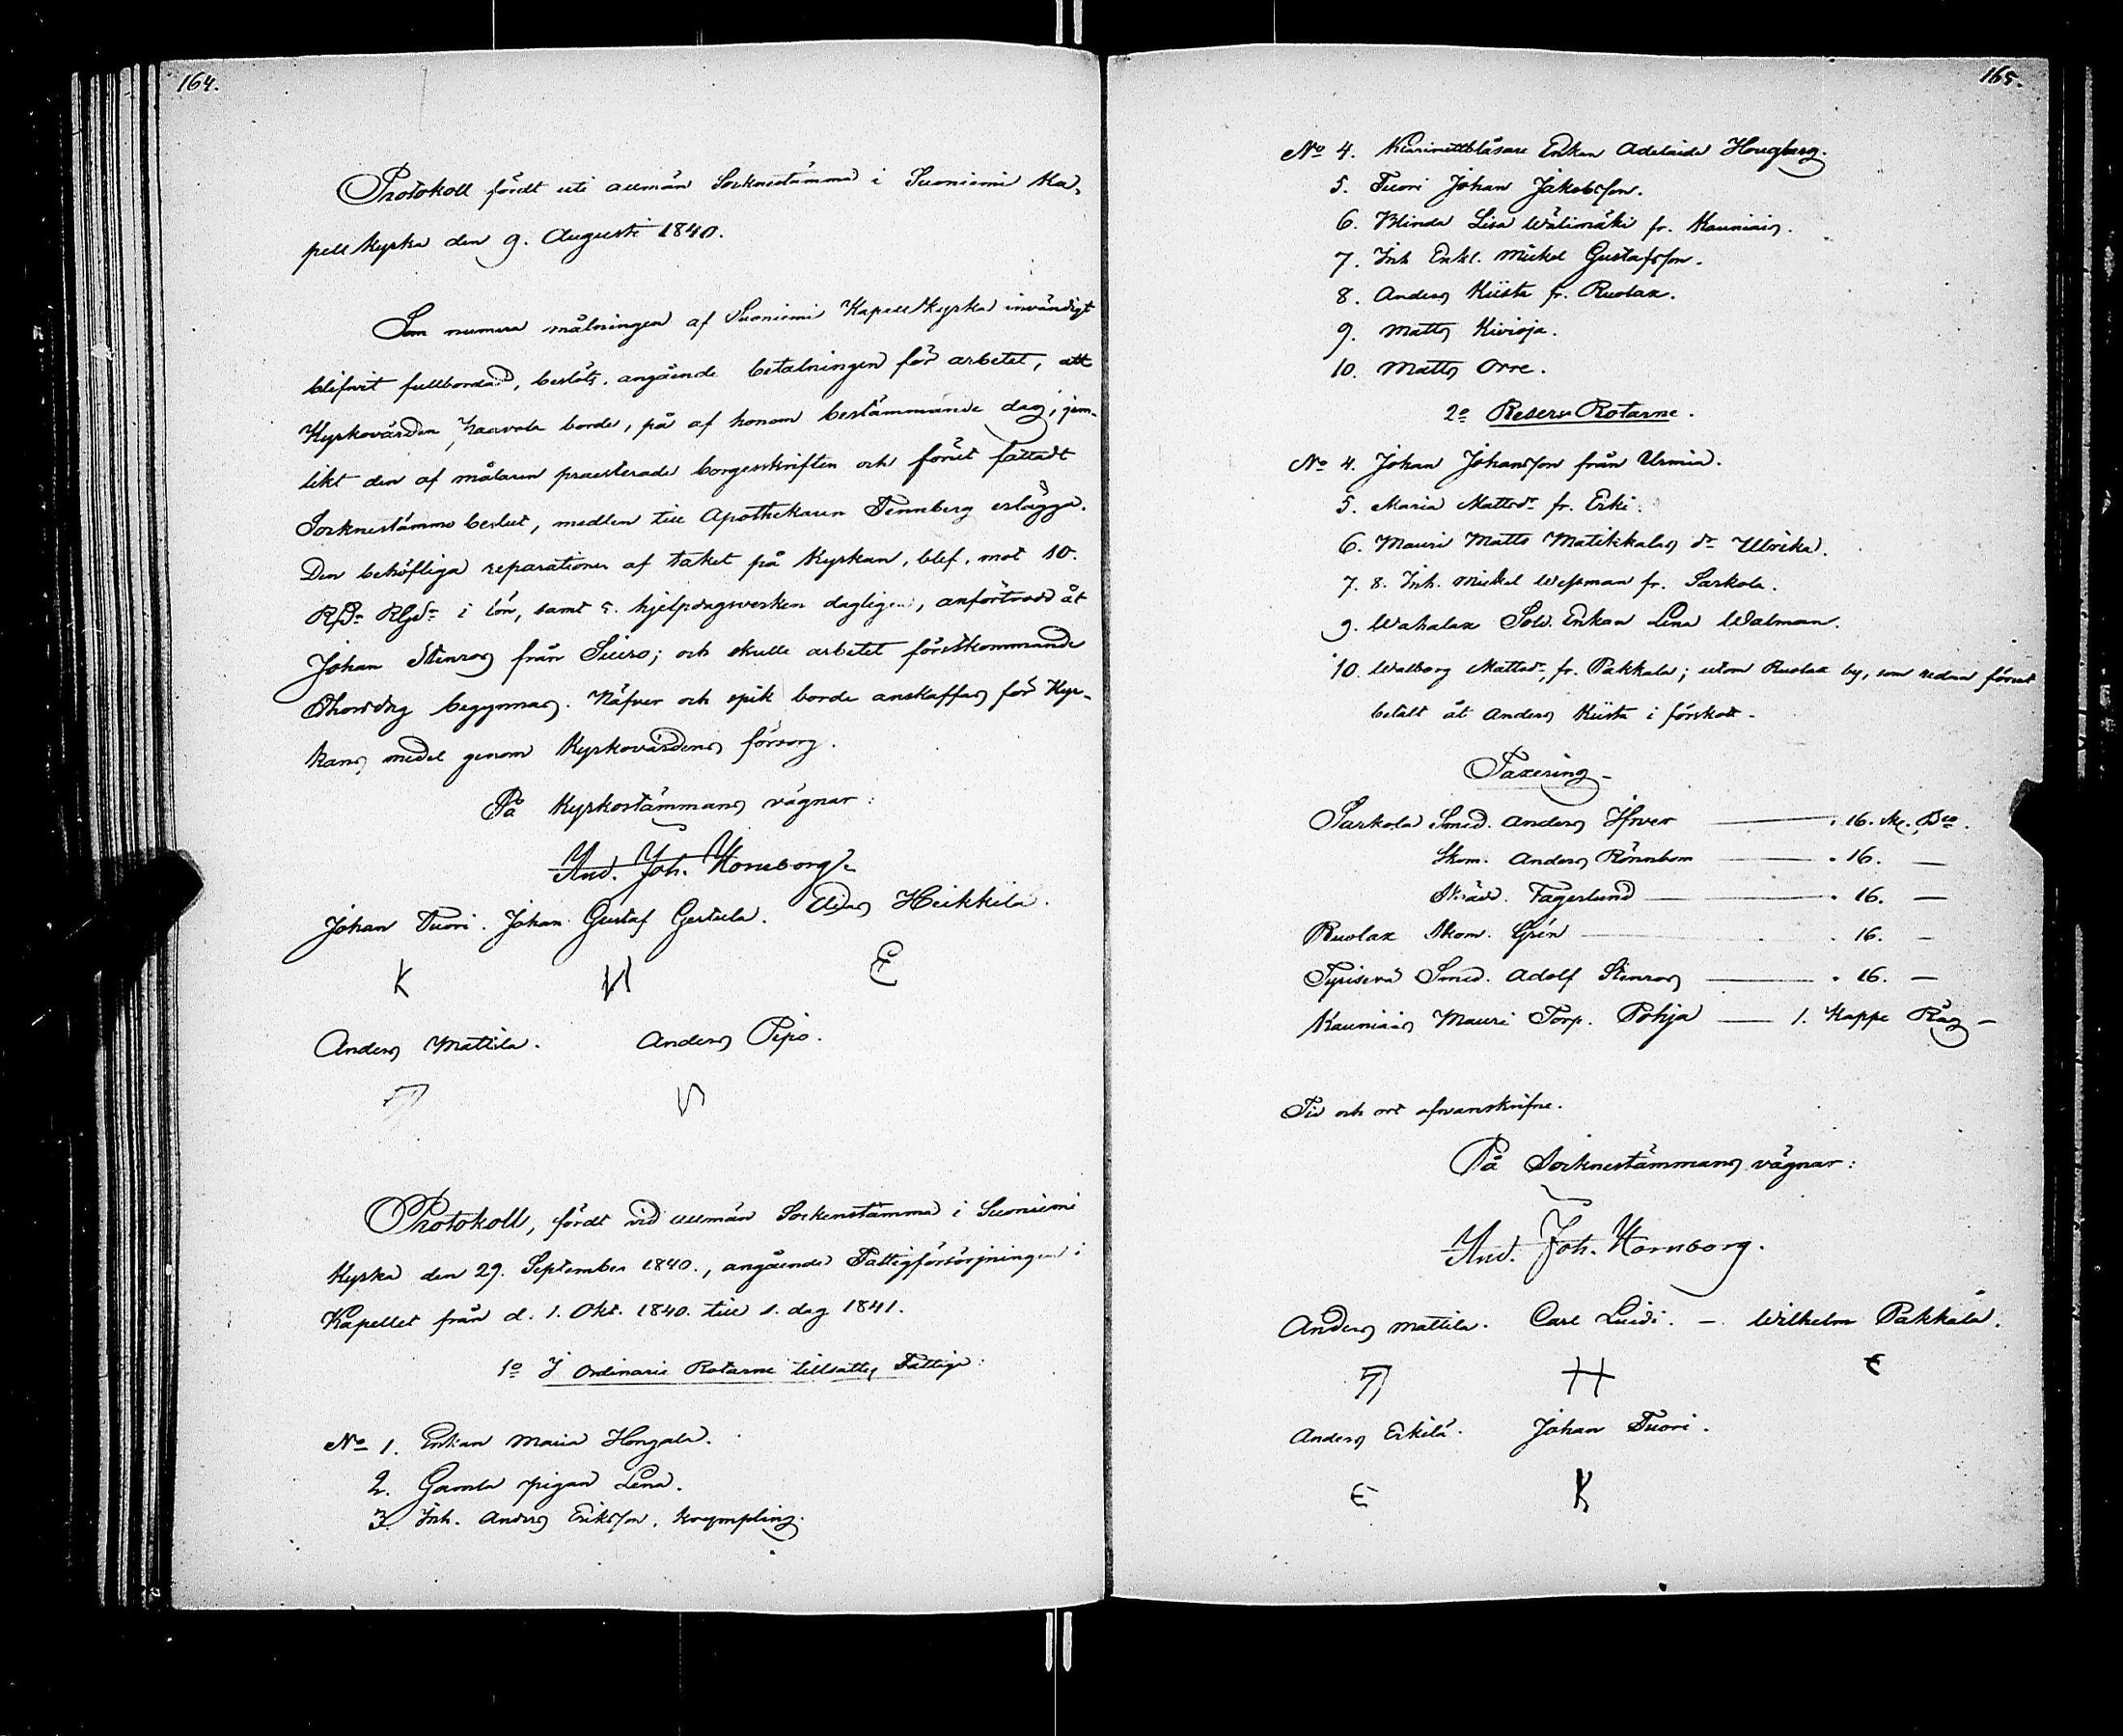 164.
Protokoll fördt uti allmän Socknestämma i Suoniemi Ka-
pell Kyrka den 9. Augusti 1840.
Som numera målningen af Suoniemi Kapell Kyrka invändigt
blifvit fullbordad, beslöts, angående betalningen för arbetet, att
Kyrkovärden Haavola borde, på af honom bestämmande dag, jem-
likt den af målaren praesterade borgesskriften och förut fattadt
Socknestämmo beslut, medlen till Apothekaren Tennberg erlägga.
Den behöfliga reparationen af taket på Kyrkan, blef, mot 10.
RD. Rgds i lön, samt 5. hjelpdagsverken dagligen, anförtrodd åt
Johan Stenros från Siuro; och skulle arbetet förstkommande
Thorsdag begynnas. Näfver och spik borde anskaffas för Kyr-
kans medel genom Kyrkovärdens försorg.
På Kyrkostämmans vägnar:
And. Joh. Hornborg
Johan Tuori. Johan Gustaf Gertula. Elias Heikkilä.
K H E
Anders Mattila. Anders Pipo.
Protokoll, fördt vid allmän Sockenstämma i Suoniemi
Kyrka den 29. September 1840., angående Fattigförsörjningen i
Kapellet från d. 1. Okt. 1840. till s. dag 1841.
1o I Ordinarie Rotarne tillsattes Fattige:
No 1. Enkan Maria Hongala.
2. Gamla pigan Lena.
3. Inh. Anders Eriksson, krympling.
165.
No 4. Klarinettblåsare Enkan Adelaide Hougberg.
5. Tuori Johan Jakobsson.
6. Blinda Lisa Wälimäki fr. Kauniais.
7. Inh Enkl. Mickel Gustafsson.
8. Anders Kiista fr. Ruolax.
9. Matts Kivioja.
10. Matts Orre.
2o Reserv Rotarne.
No 4. Johan Johansson från Urmia.
5. Maria Mattsdr fr. Erki.
6. Mauri Matts Matikkalas dr Ulrika.
7. 8. Inh. Mickel Wessman fr. Sarkola.
9. Wahalax Sold. Enkan Lena Walman.
10. Walborg Mattsdr. fr. Pakkala; utom Ruolax by, som redan förut
betalt åt Anders Kiista i förskott.
Taxering
Sarkola Smed. Anders Ifver — 16. sk. Bco.
Skom. Anders Rönnbom — 16. —
Skräd. Fagerlund — 16. —
Ruolax Skom. Grén — 16. —
Tyrisevä Smed. Adolf Stenros — 16. —
Kauniais Mauri Torp. Pohja — 1. Kappe Råg —
Tid och ort ofvanskrifne.
På Socknestämmans vägnar:
And. Joh. Hornborg.
Anders Mattila. Carl Luidi. — Wilhelm Pakkala.
H E
Anders Erkilä. Johan Tuori.
E K